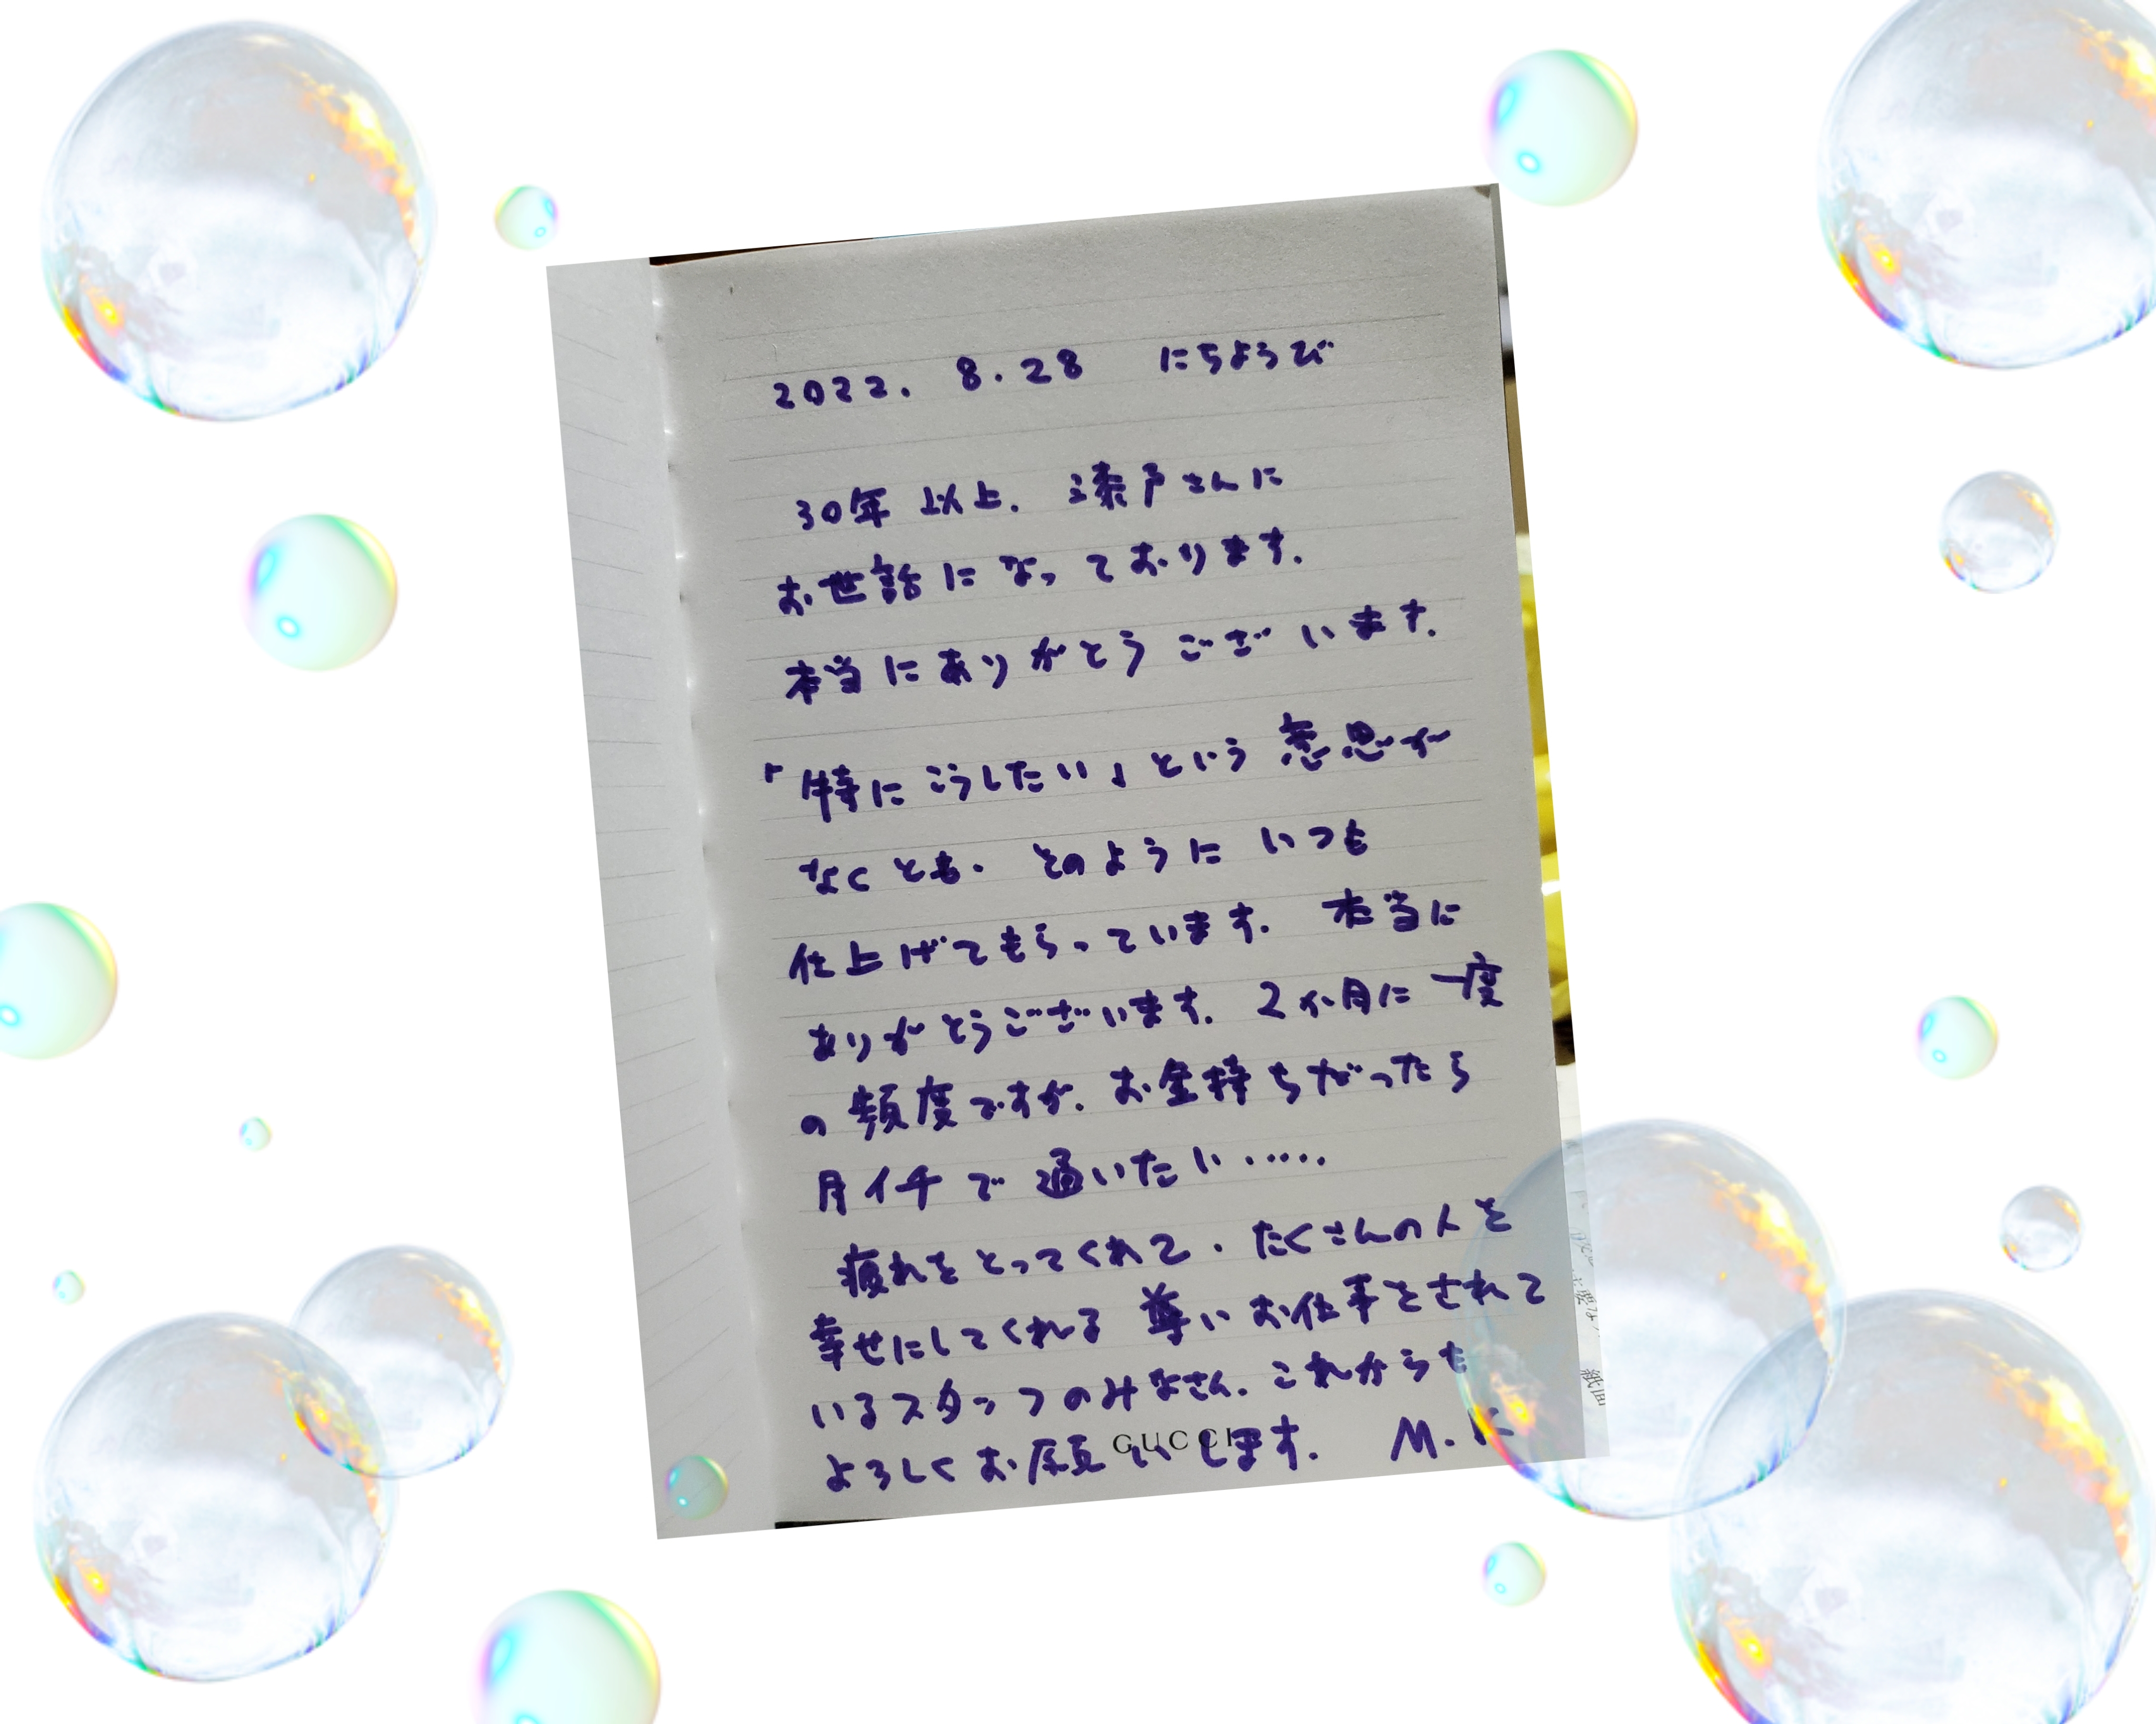 2022. 8.28 にちようび
30年以上、瀬戸さんに
お世話になっております。
本当にありがとうございます。
「特にこうしたい」という意思が
なくとも、そのようにいつも
仕上げてもらっています。本当に
ありがとうございます。2か月に一度
の頻度ですが、お金持ちだったら
月イチで通いたい……
疲れをとってくれて、たくさんの人を
幸せにしてくれる尊いお仕事をされて
いるスタッフのみなさん、これからも
よろしくお願いします。 M.K
GUCCI